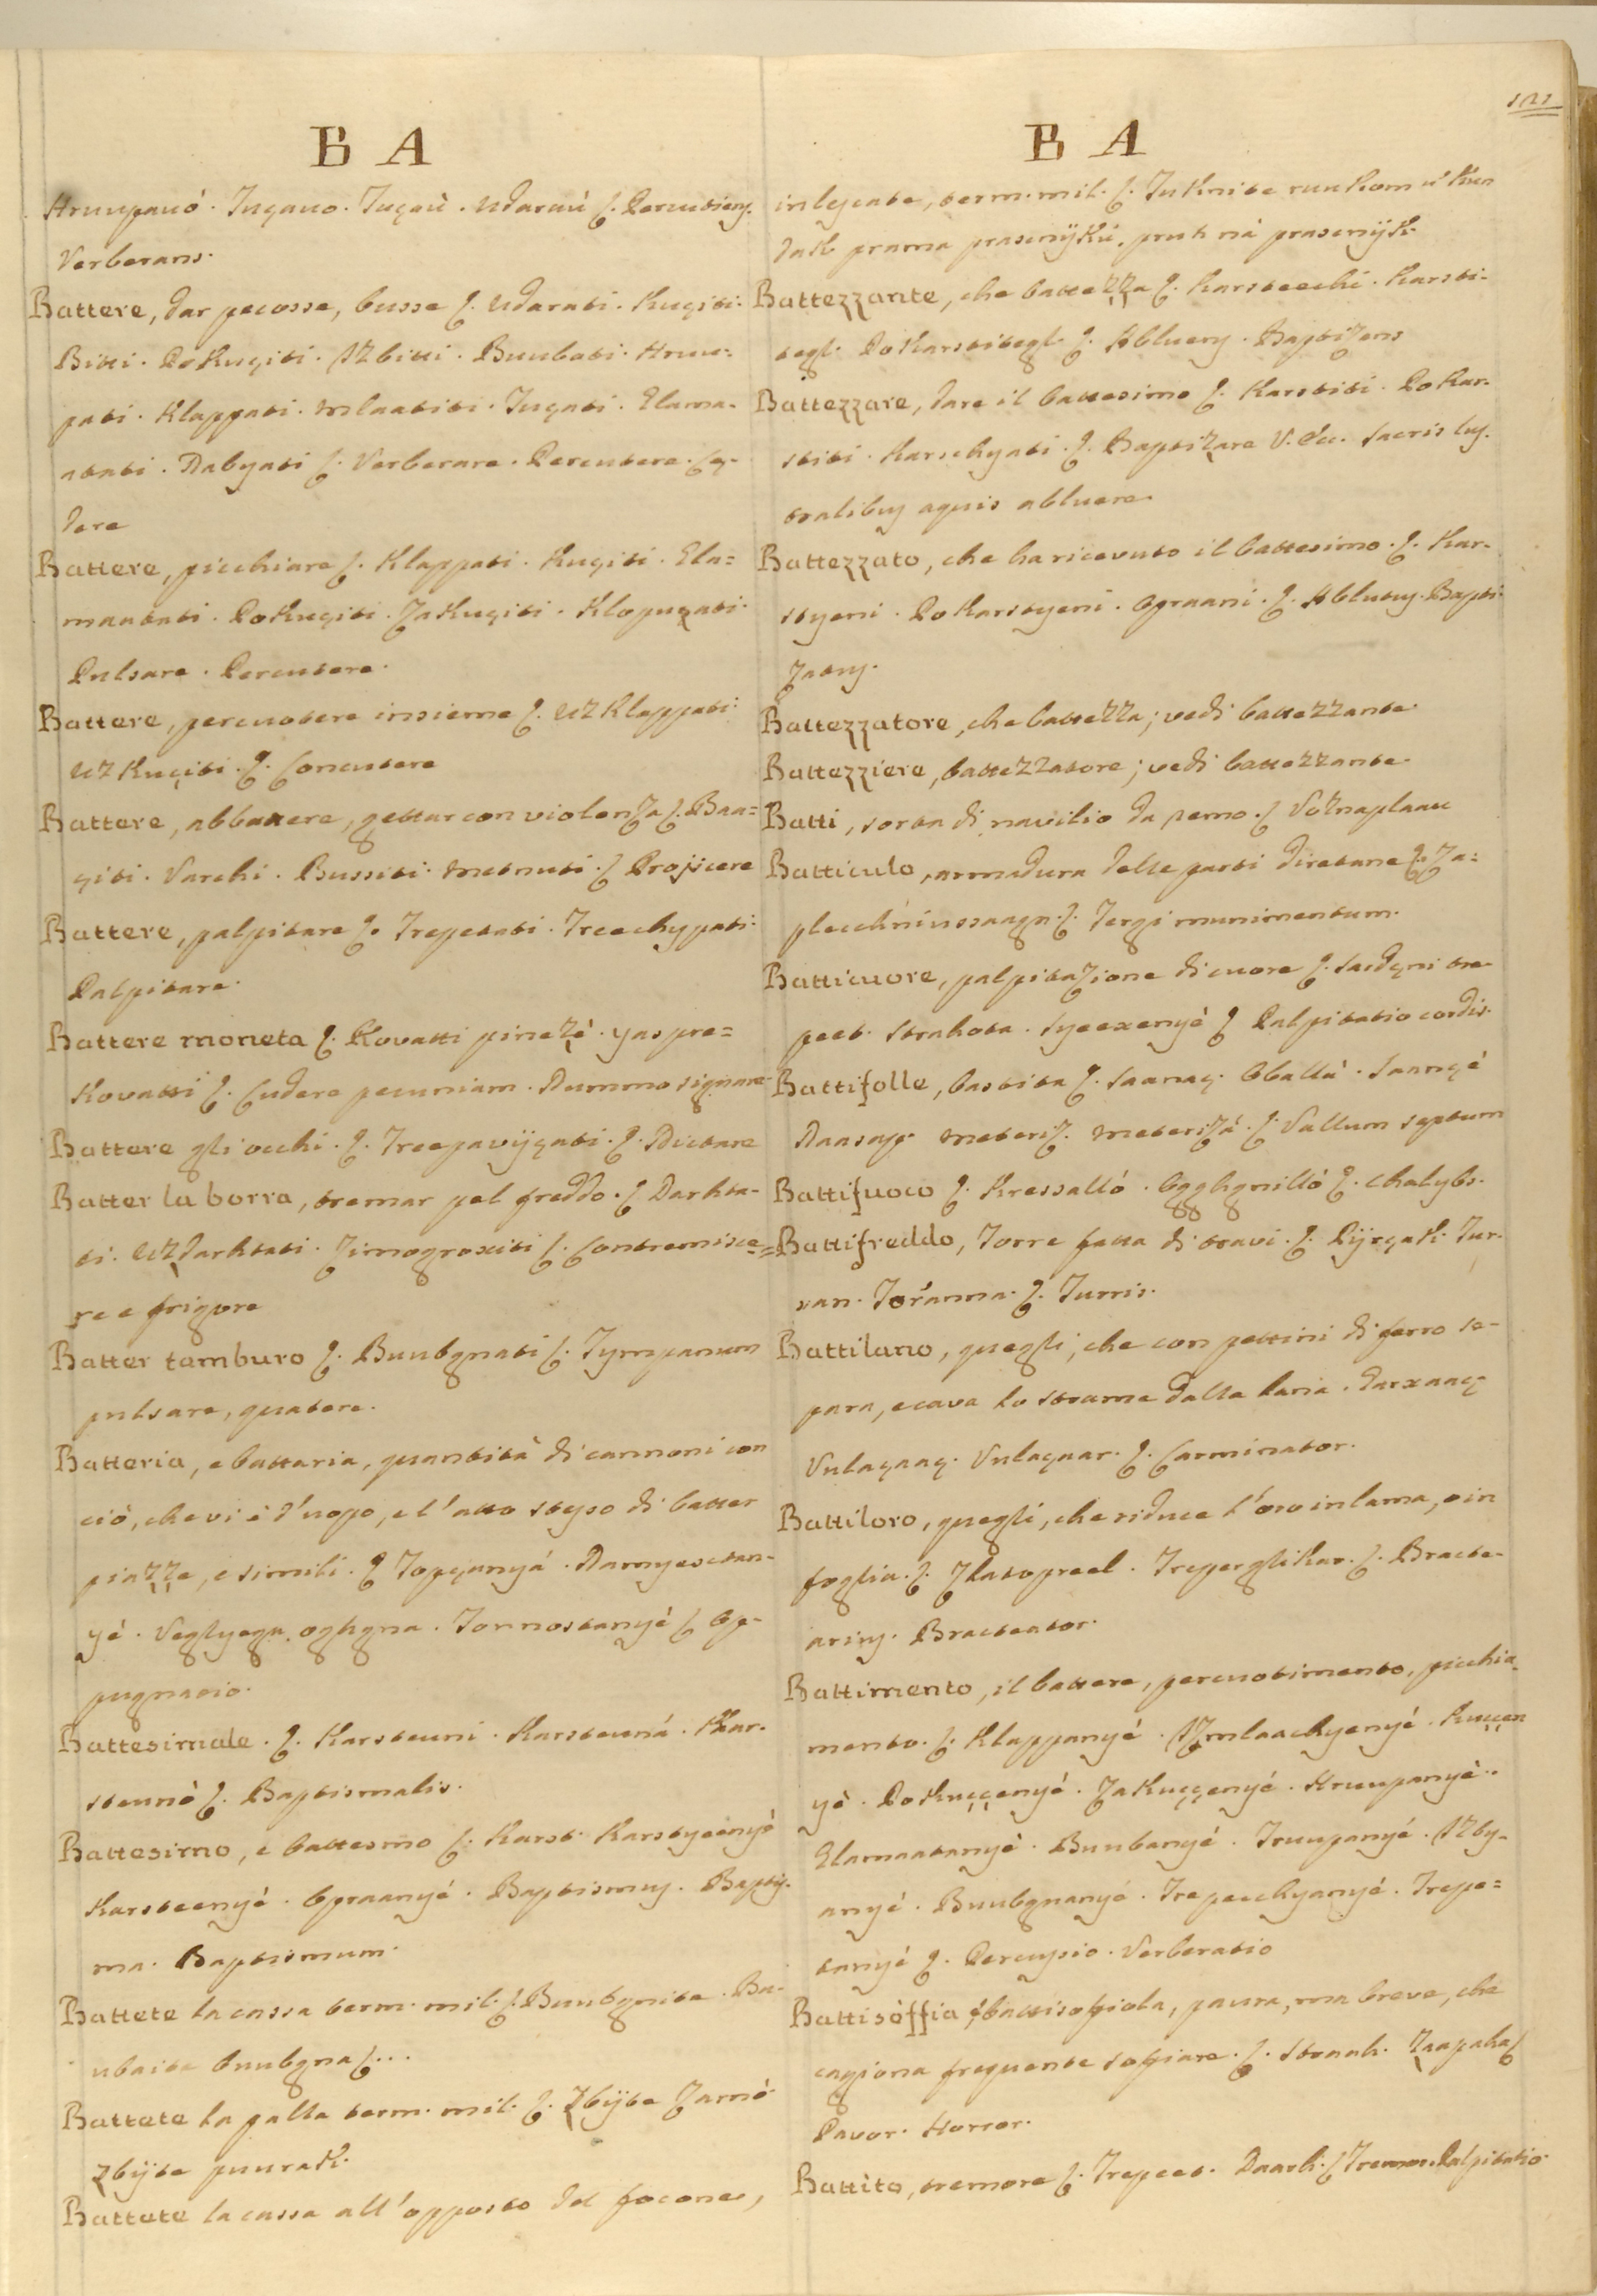 121
B A
Hruupauó. Tuçauo. Tuçaù. Udaraú ʃ. Percutiens.
Verberans.
Battere, dar pecosse, busse ʃ. Udarati. Kuçiti.
Bitti. Pokuçiti. Izbitti. Buubati. Hruu=
pati. Klappati. Mlaatiti. Tuçati. Elama-
atati. Dabyati ʃ. Verberare. Percutere. Cę-
dere
Battere, picchiare ʃ. Klappati. Kuçiti. Ela=
maatati. Pokuçiti. Zakuçiti. Klopuzati.
Pulsare. Percutere.
Battere, percuotere insieme ʃ. Uzklappati.
Uzkuçiti. ʃ. Concutere
Battere, abbattere, gettar con violenza ʃ. Baa=
çiti. Varchi. Bussiti. Metnuti. ʃ Projicere
Battere, palpitare ʃ. Trepetati. Treechypati.
Palpitare.
Battere moneta ʃ. Kovatti pinezè. yaspre=
Kovatti ʃ. Cudere pecuniam. Nummo signare
Battere gli occhi. ʃ. Treepavijçati. ʃ. Nictare
Batter la borra, tremar pel freddo. ʃ Darhta-
ti. Uzdarhtati. Zimogroxiti ʃ. Contremisce=
re e frigore
Batter tamburo ʃ. Buubgnati ʃ. Tympanum
pulsare, quatere.
Batteria, e battaria, quantità di cannoni con
ciò, che vi è d'uopo, e l'atto stesso di batter
piazze, e simili. ʃ Topçanyá. Damyesctan-
yé. Veglyega oghgna. Tonnostanyè ʃ Op-
pugnatio.
Battesimale. ʃ. Karsteuni. Karsteuná. Kar.
steunò ʃ. Baptismalis.
Battesimo, e battesmo ʃ. Karst. Karstyeenyè
Karsteenyé. Opraanyé. Baptismus. Baptis-
ma. Baptismum.
Battete la cassa term. mil. ʃ. Buubgnite. Bu-
ubaite buubgna ʃ...
Battete la palla term. mil. ʃ. Zbijte Zarnò
Zbijte puurak.
Battete la cassa all'opposto del focone,
B A
inlycate, term. mil. ʃ. Tuknite ruukom u kun
dak prama prasenijkú. pruh ná prasenijk.
Battezzante, che battezza ʃ. Karsteechi. Karsti-
tegl. Pokarstitegl. ʃ. Abluens. Baptizans
Battezzare, dare il battesimo ʃ. Karstiti. Pokar-
stiti. Karschyati. ʃ. Baptizare V. Ecc. Sacris lus-
tralibus aquis abluere.
Battezzato, che ha ricevuto il battesimo. ʃ. Kar-
styeni. Pokarstyeni. Opraani. ʃ. Ablutus. Bapti-
zatus.
Battezzatore, che battezza; vedi battezzante.
Battezziere, battezzatore; vedi battezzante.
Batti, sorta di navilio da remo. ʃ Voznaplauu
Batticulo, armadura delle parti diretane ʃ. Za=
pleechniussaagn. ʃ. Tergi munimentum.
Batticuore, palpitazione di cuore ʃ. Sardçni tre-
peet. Strahota. Syeexenyè ʃ Palpitatio cordis.
Battifolle, bastita ʃ. Saanaç. Oballà. Saançé
Naasap. Meteriz. Meterizá. ʃ. Vallum septum
Battifuoco ʃ. Kressalló. Ogghgnilló ʃ. Chalybs.
Battifreddo, Torre fatta di travi. ʃ. Pijrgak. Tur.
ran. Toranna. ʃ. Turris.
Battilano, quegli, che con pettini di ferro se-
para, e cava lo strame dalla lana. Darxaaç
Vulaçaaç. Vulaçaar. ʃ. Carminator.
Battiloro, quegli, che riduce l'oro in lama, o in
foglia. ʃ. Zlatopreel. Treperglikar. ʃ. Bracte-
arius. Bracteator.
Battimento, il battere, percuotimento, picchia-
mento. ʃ. Klappanyé. Izmlaachyenyé. Kuççen
yè. Pokuççenyé. Zakuççenyé. Hruupanyè.
Elamaatanyè. Buubanyé. Truupanyé. Izby-
anyé. Buubgnanyé. Trepeechyanyé. Trepe=
tanyé ʃ. Percussio. Verberatio
Battisòffia, e battisoffiola, paura, ma breve, che
cagiona frequente soffiare. ʃ. Straah. Zaapaha ʃ
Pavor. Horror.
Battito, tremore ʃ. Trepeet. Daarh. ʃ Tremor. Palpitatio.